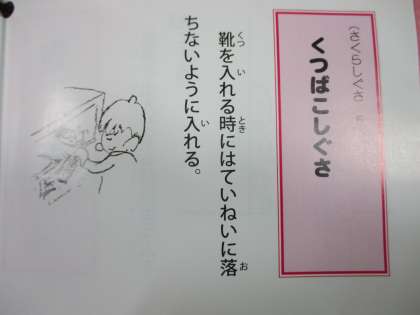 くつばこしぐさ
靴を入れる時にはていねいに落
ちないように入れる。
くつ
い
とき
お
い